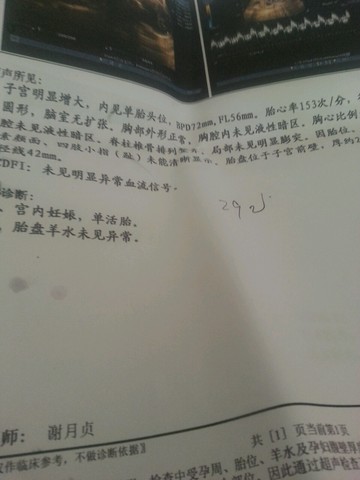 声所见:
子宫明显增大，内见单胎头位，BPD72mm,FL56mm。胎心率153次/分，
圆形，脑室无扩张，胸部外形正常，胸腔内未见液性暗区。胸心比例
腔未见液性暗区。脊柱椎骨排列 局部未见明显膨突。因胎位
颜面、四肢小指(趾)未能清晰显示，胎盘位于子宫前壁，厚约2
径线42mm。
CDFI: 未见明显异常血流信号。
诊断:
、宫内妊娠，单活胎。
、胎盘羊水未见异常。
29
师: 谢月贞
仅作临床参考，不做诊断依据》
共 [1] 页当前第1页
检查中受孕周、胎位、羊水及孕妇腹壁厚
因此通过超声检查